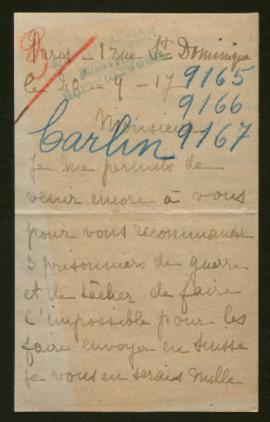 Paris - 1 rue St Dominique
le 20 - 9 - 17
9165
9166
Monsieur 9167
Carlin
Je me permets de
venir encore à vous
pour vous recommander
3 prisonniers de guerre
et de tâcher de faire
l'impossible pour les
faire envoyer en Suisse
je vous en serais mille